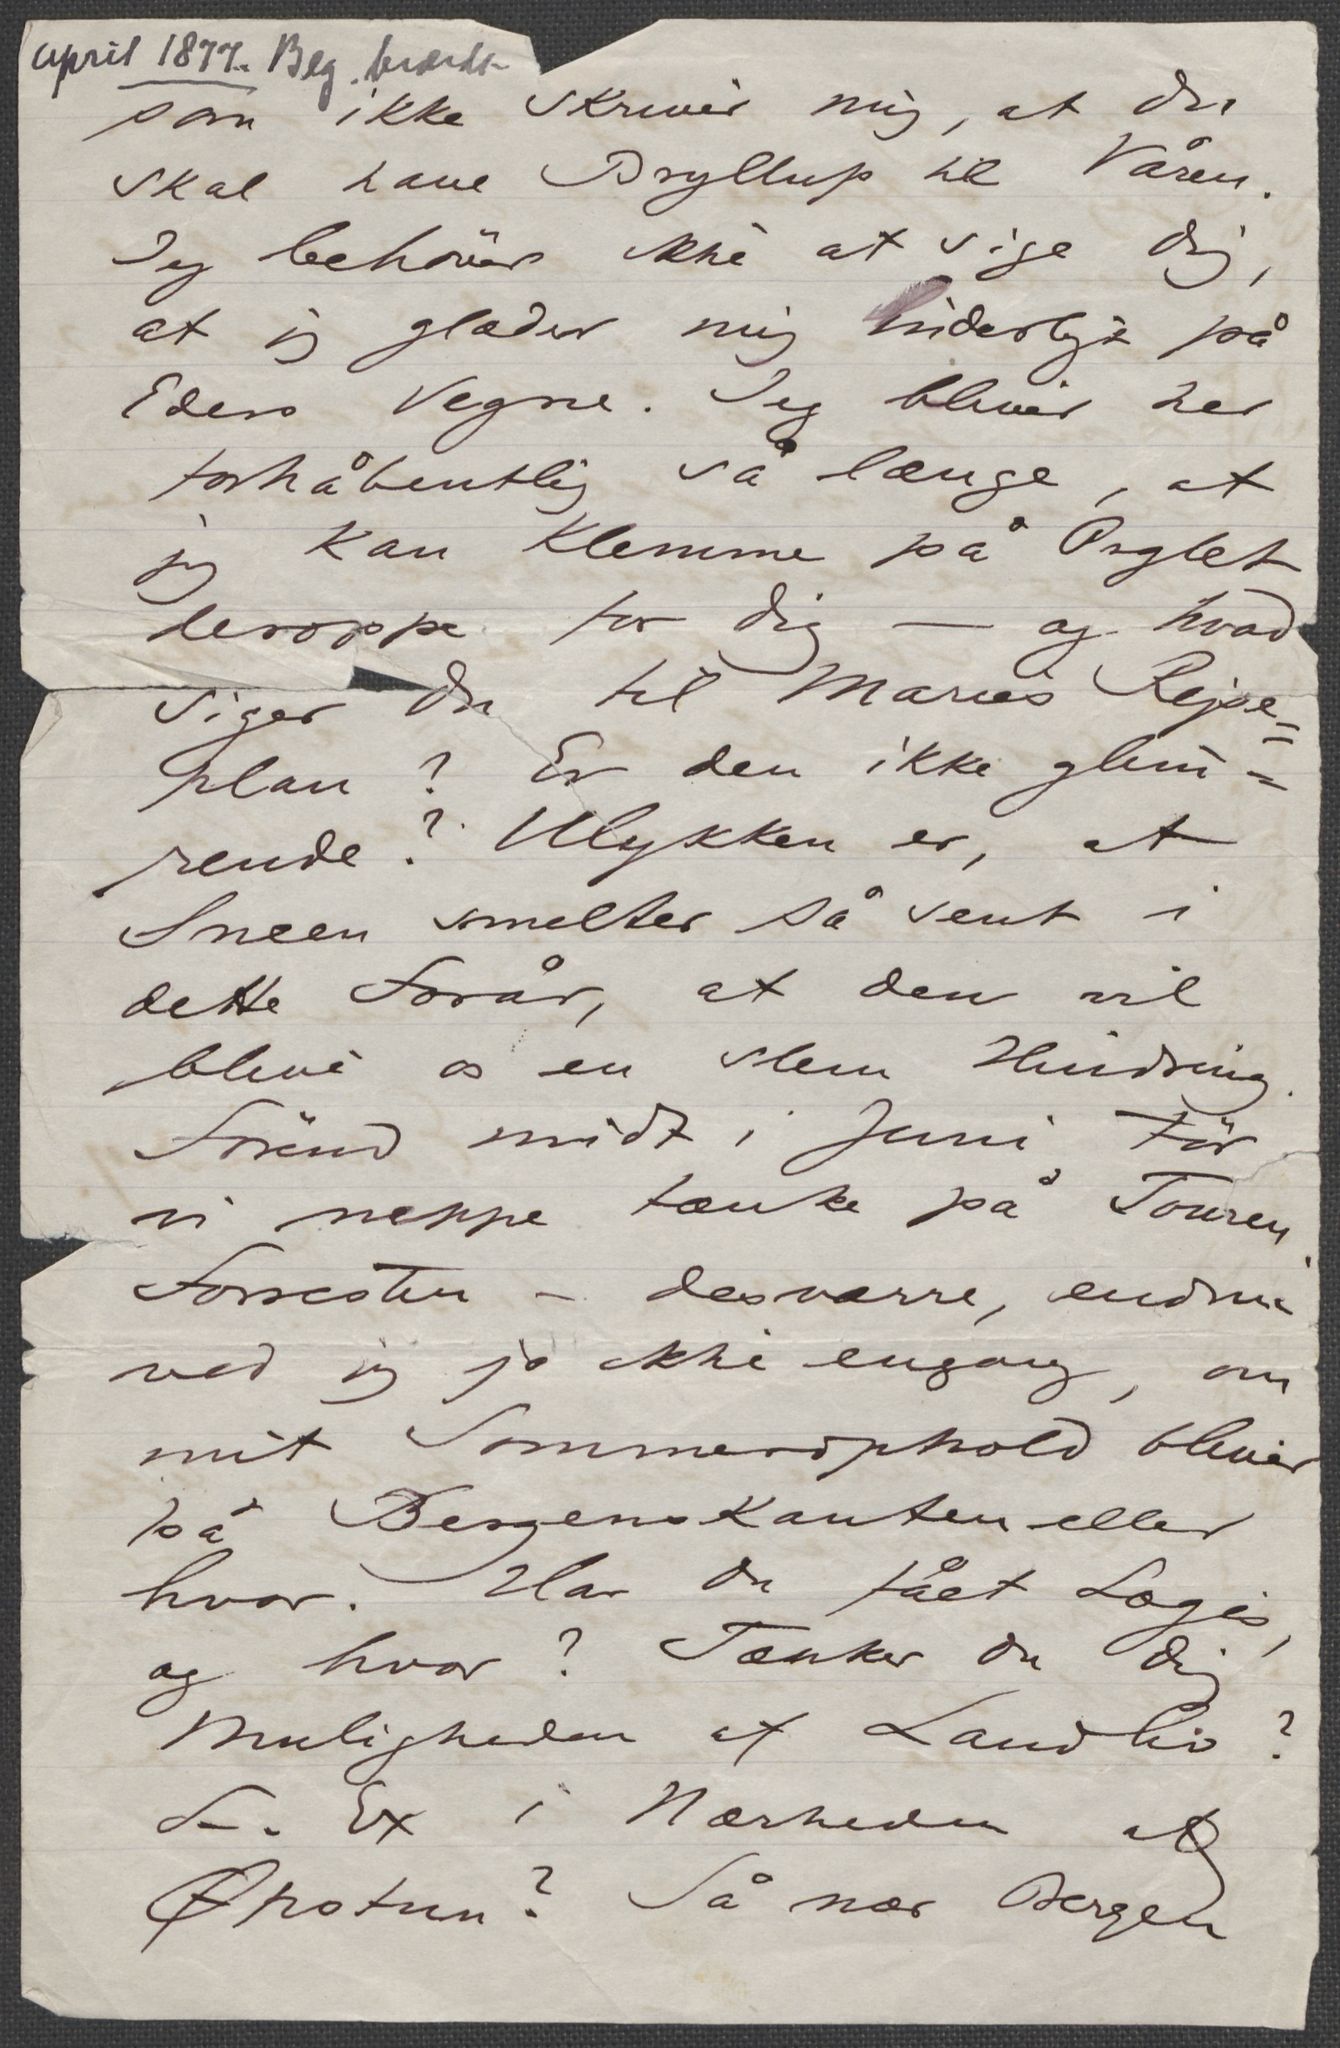 april 1877. Beg.
som ikke skriver mig, at du
skal have Bryllup til Våren.
Jeg behöver ikke at sige dig,
at jeg glæder mig inderligt på
Eders Vegne. Jeg bliver her
forhåbentlig så længe, at
jeg kan klemme på Orglet
deroppe for dig — og hvad
siger du til Maries Rejse=
plan? Er den ikke glim=
rende? Ulykken er, at
Sneen smelter så sent i
dette Forår, at den vil
blive os en slem Hindring.
Förend midt i Juni tör
vi neppe tænke på Touren.
Forresten – desværre, endnu
ved jeg jo ikke engang, om
mit Sommerophold bliver
på Bergenskanten eller
hvor. Har du fået Logis,
og hvor? Tænker du dig
Muligheden af Landliv?
F. Ex i Nærheden af
Øpstun? Så nær Bergen